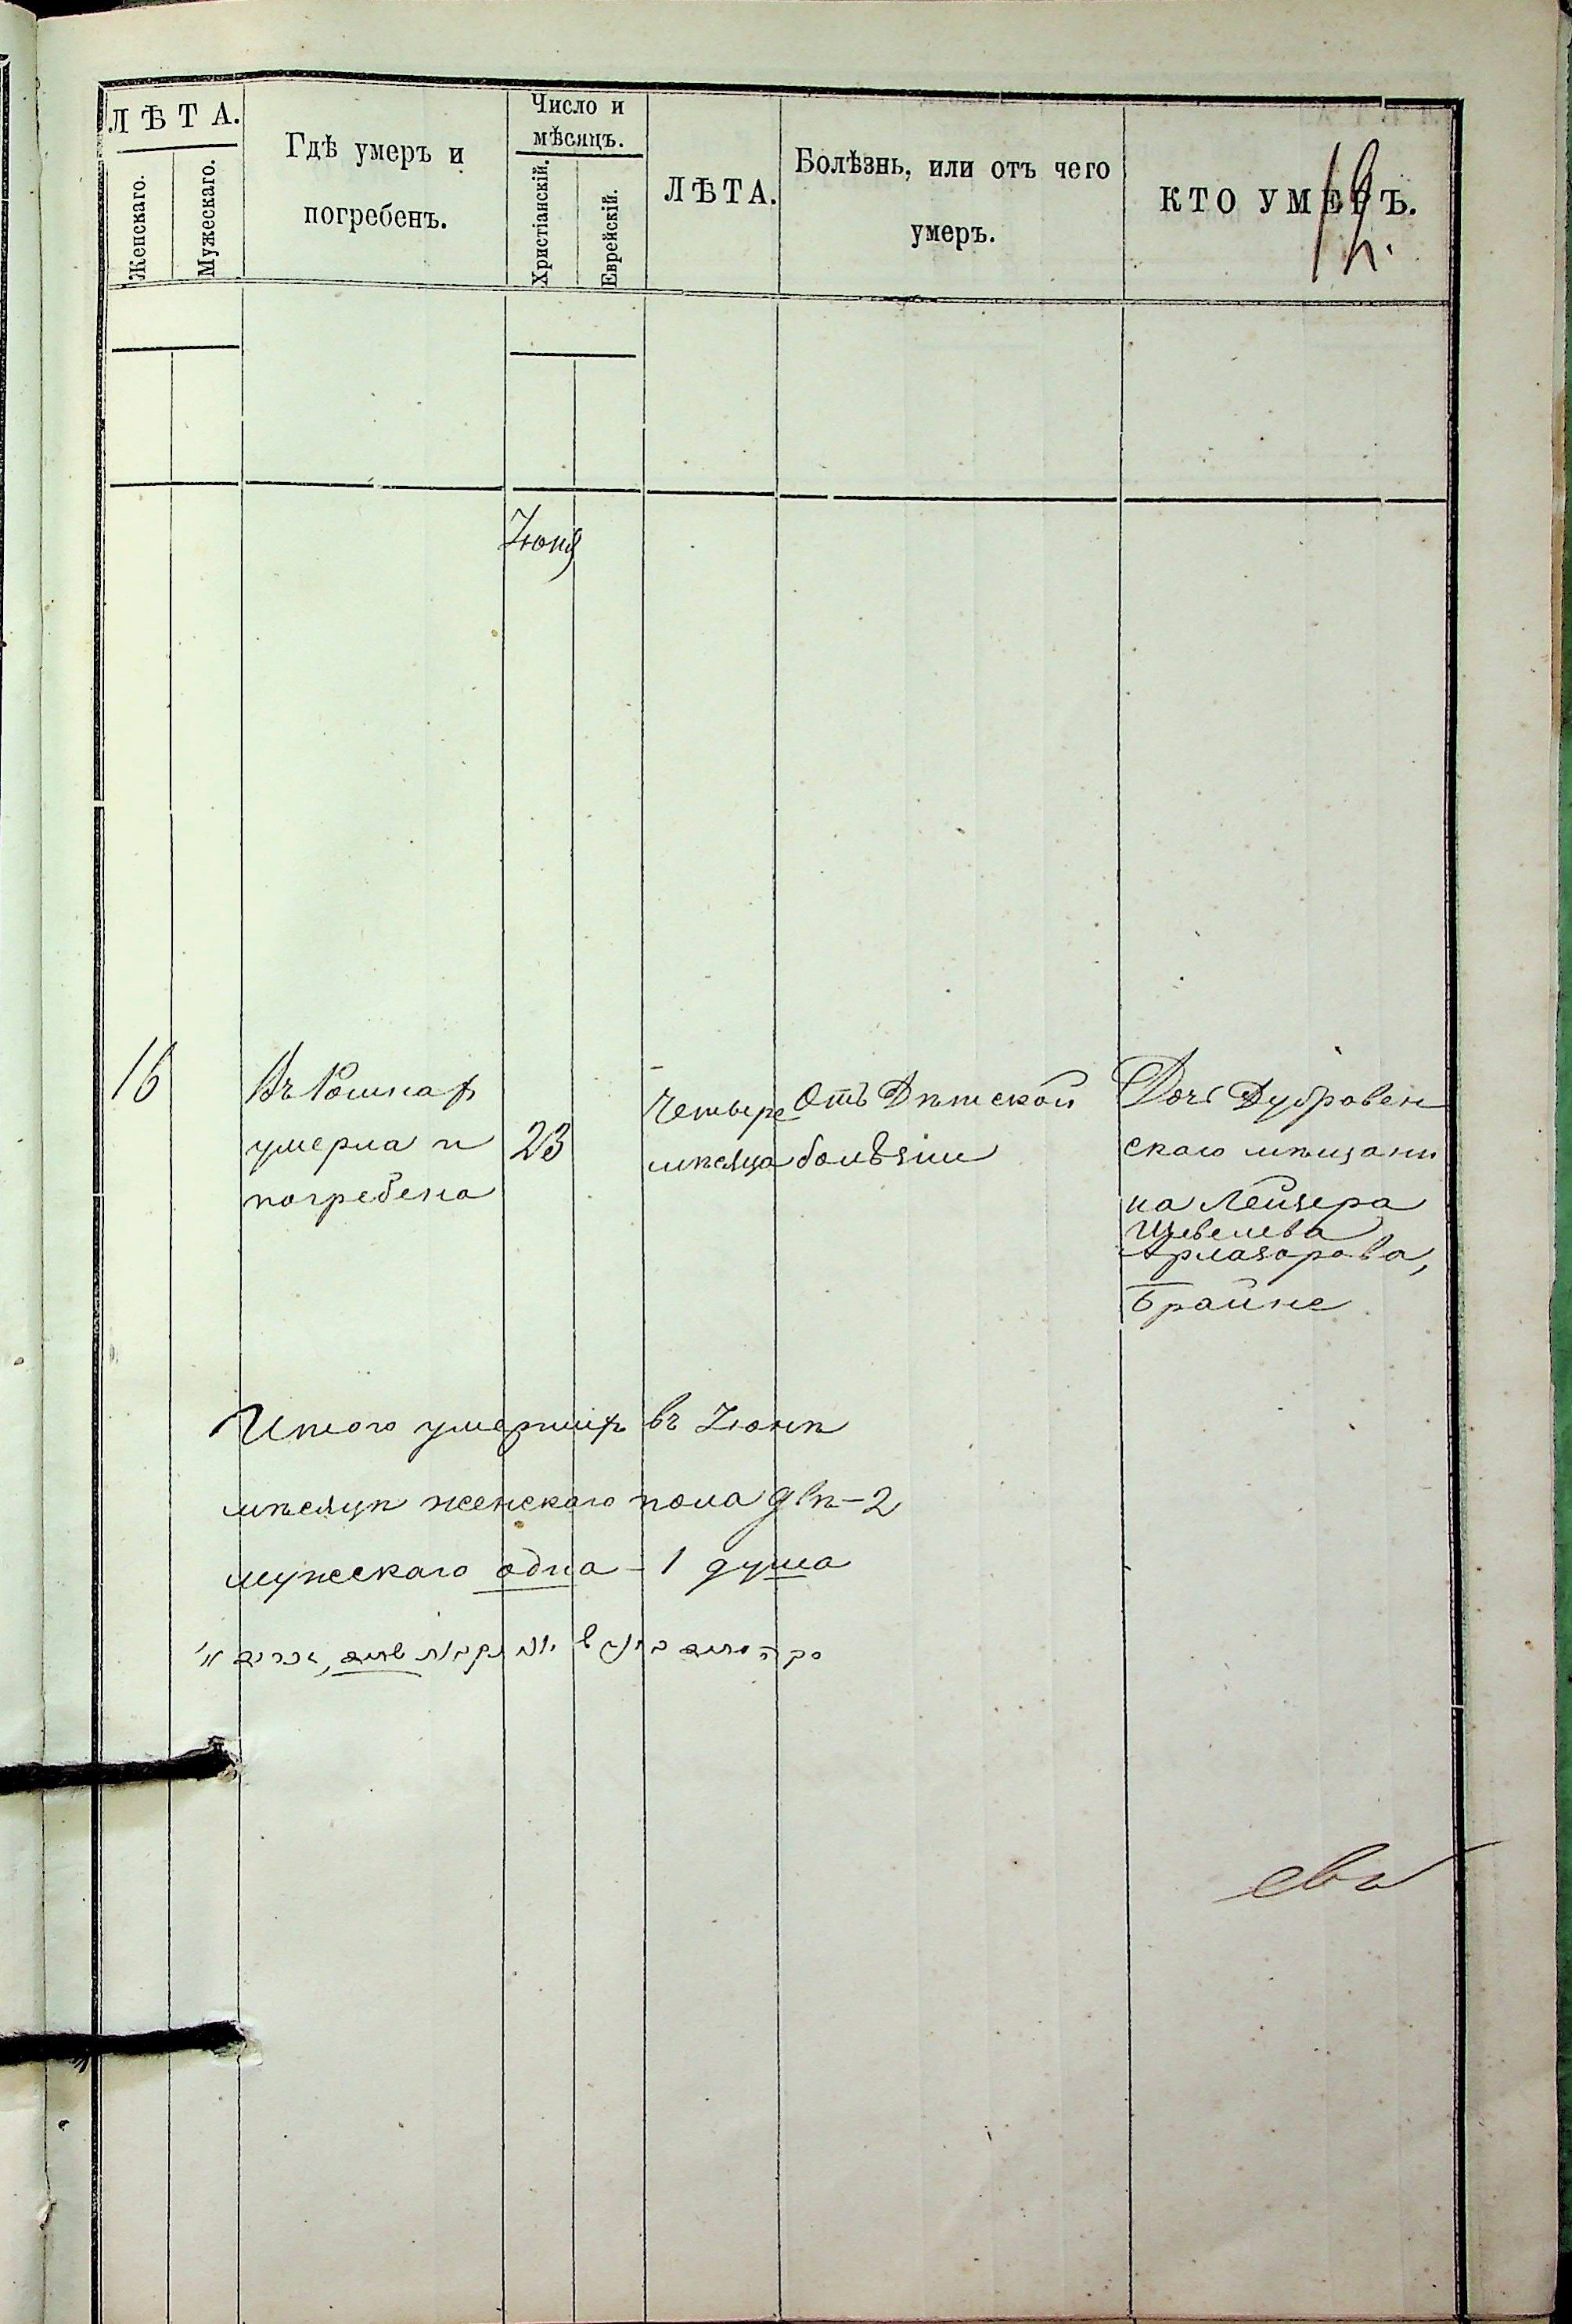 ЛѢТА.
Женскаго.
Мужескаго.
Гдѣ умеръ и
погребенъ.
Число и
мѣсяцъ.
Христіанскій.
Еврейскій.
ЛѢТА.
Болѣзнь, или отъ чего
умеръ.
КТО УМЕРЪ.
12.
Іюня
16
Въ Ромнах
умерла и
погребена
23
Четыре
мѣсяца
Отъ Дѣтской
болѣзни
Дочь Дубровен
скаго мѣщани
на Лейзера
Шевелева
Арлазорова,
Брайне
Итого умершихъ въ Іюнѣ
мѣсяцѣ женскаго пола двѣ - 2
мужескаго одна - 1 душа
евъ